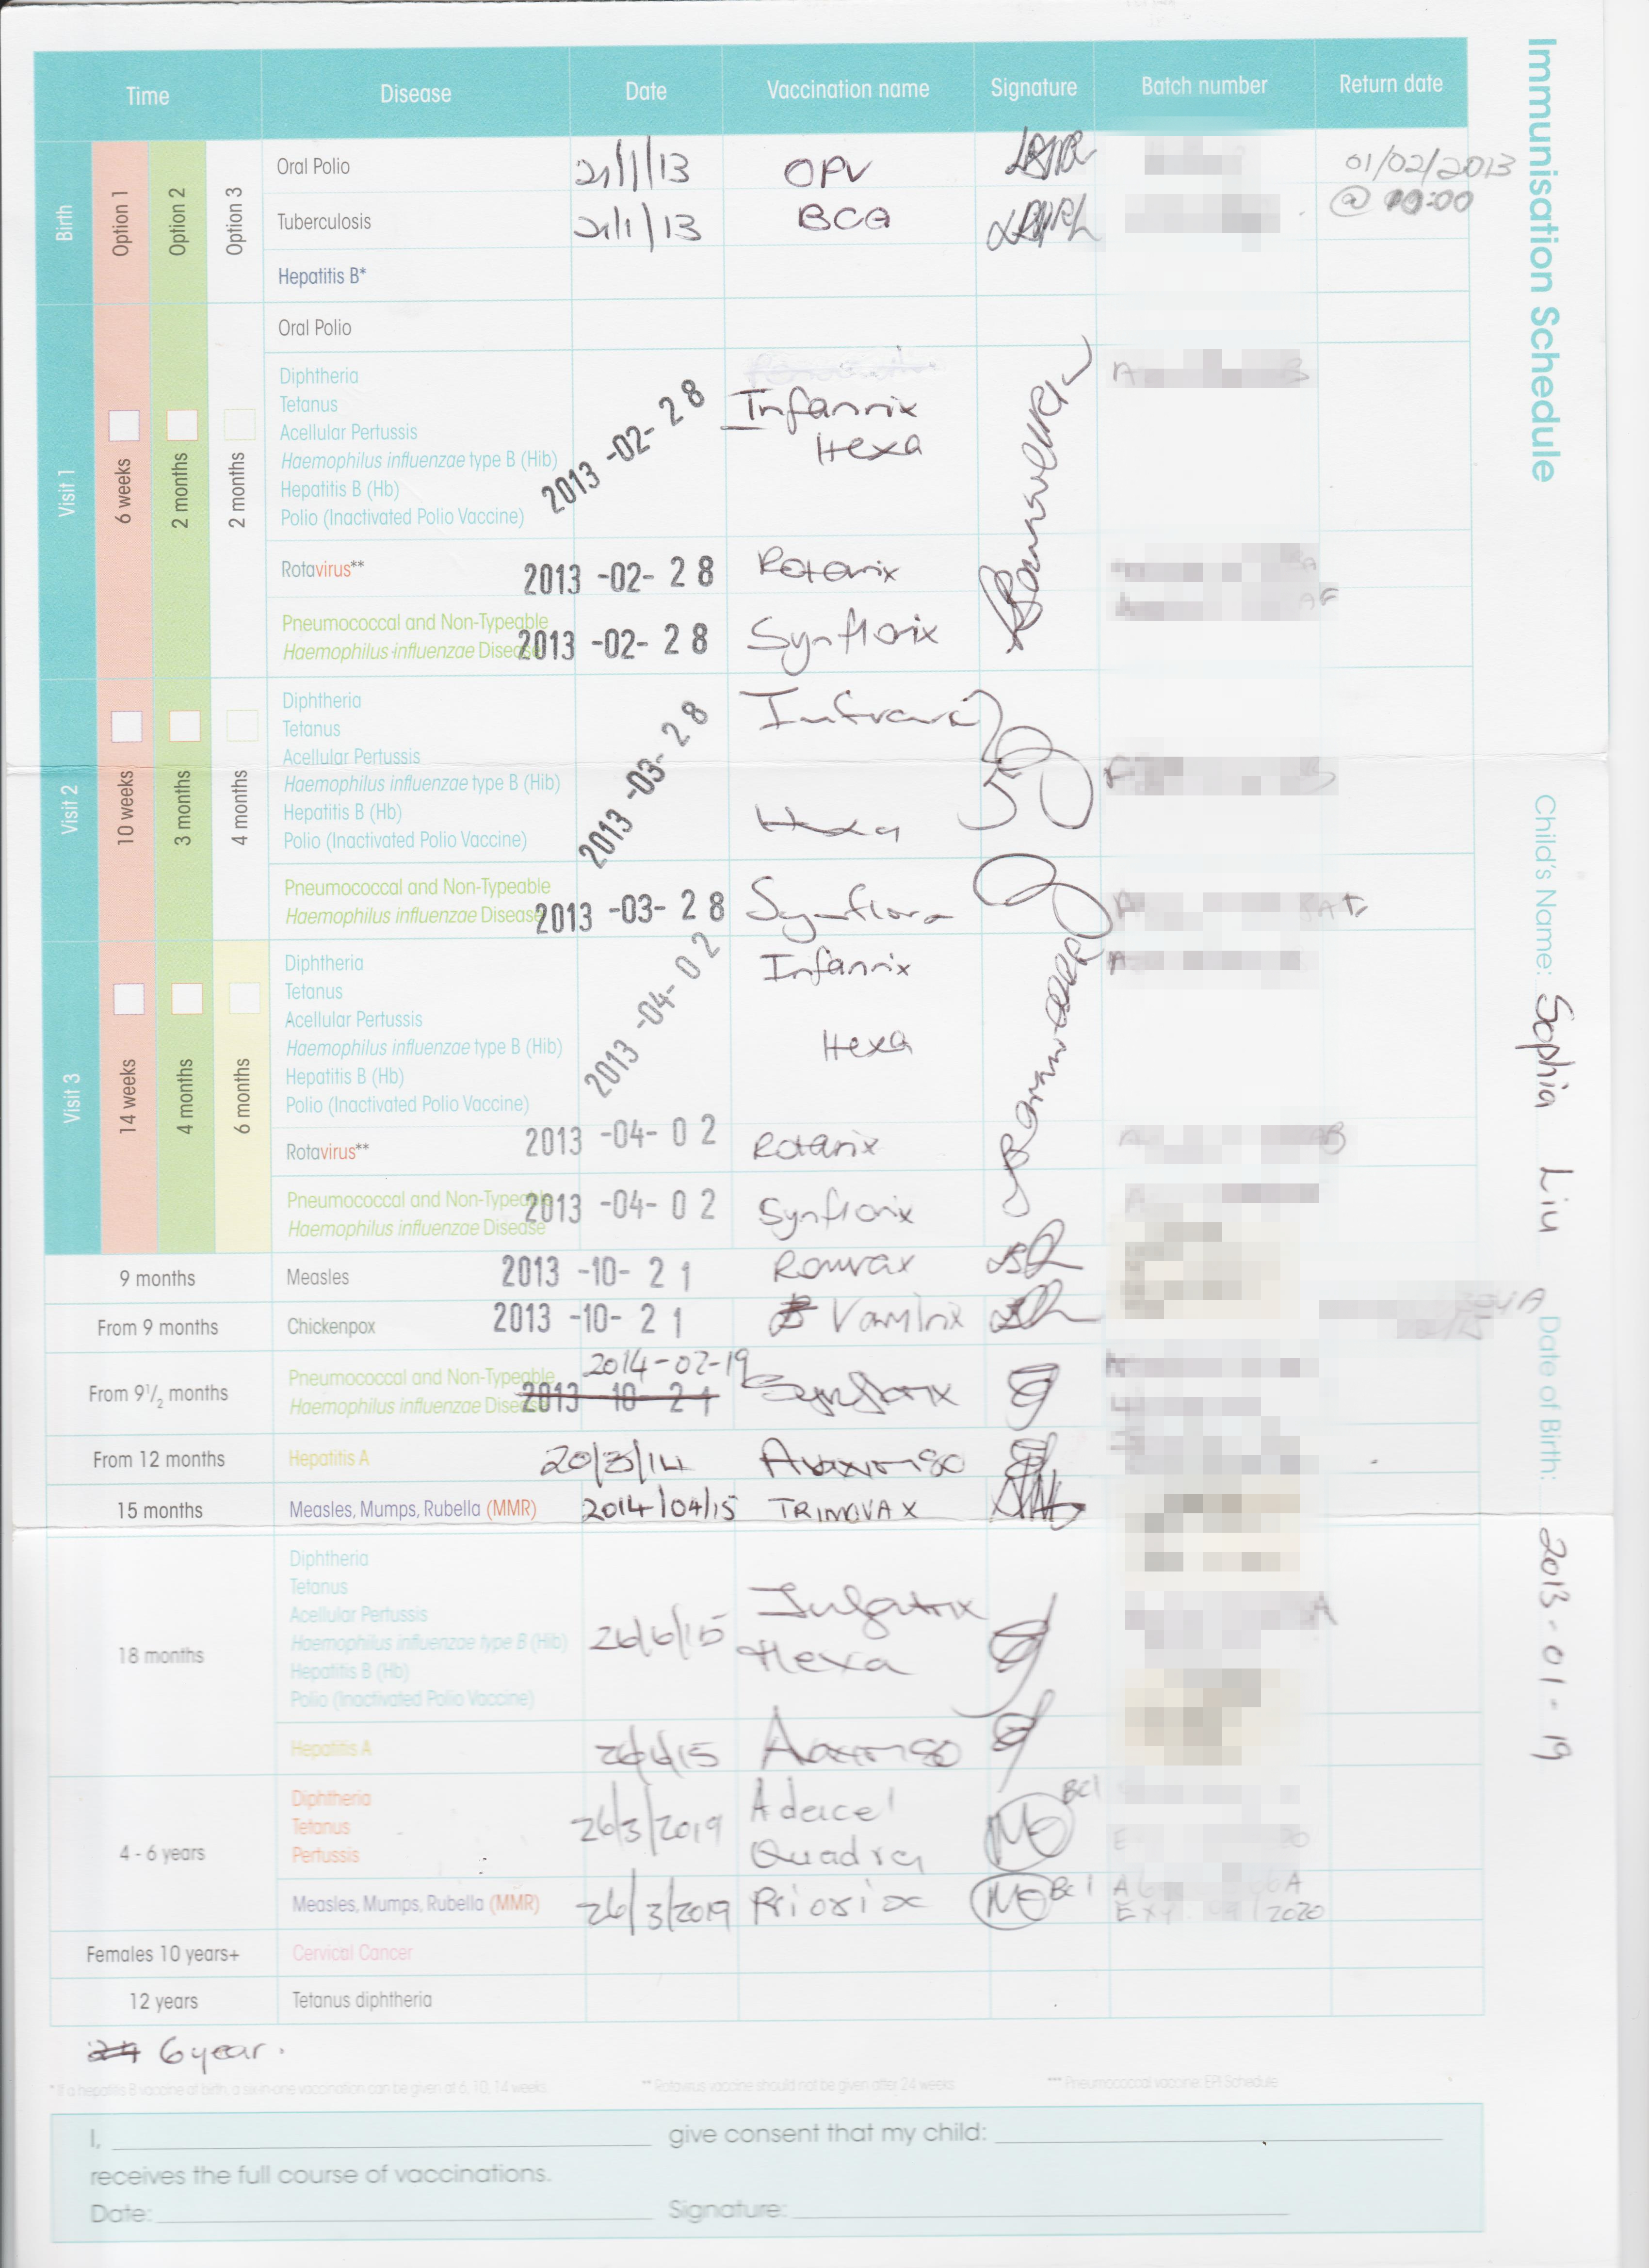 Immunisation Schedule
Child's Name: Sophia Liu Date of Birth: 2013-01-19
Time Disease Date Vaccination name Signature Batch number Return date
Birth
Option 1
Option 2
Option 3
Oral Polio 21/1/13 OPV 01/02/2013
Tuberculosis 21/1/13 BCG @ 10:00
Hepatitis B*
Visit 1
6 weeks
2 months
2 months
Oral Polio
Diphtheria
Tetanus
Acellular Pertussis
Haemophilus influenzae type B (Hib)
Hepatitis B (Hb)
Polio (Inactivated Polio Vaccine)
2013 -02- 28
Infannix
Hexa
Rotavirus** 2013 -02- 28 Rotarix
Pneumococcal and Non-Typeable
Haemophilus influenzae Disease 2013 -02- 28 Synflorix
Visit 2
10 weeks
3 months
4 months
Diphtheria
Tetanus
Acellular Pertussis
Haemophilus influenzae type B (Hib)
Hepatitis B (Hb)
Polio (Inactivated Polio Vaccine)
2013 -03- 28
Hexa
Pneumococcal and Non-Typeable
Haemophilus influenzae Disease 2013 -03- 28
Visit 3
14 weeks
4 months
6 months
Diphtheria
Tetanus
Acellular Pertussis
Haemophilus influenzae type B (Hib)
Hepatitis B (Hb)
Polio (Inactivated Polio Vaccine)
2013 -04- 02
Infannix
Hexa
Rotavirus** 2013 -04- 02 Rotarix
Pneumococcal and Non-Typeable
Haemophilus influenzae Disease 2013 -04- 02 Synflorix
9 months Measles 2013 -10- 21
From 9 months Chickenpox 2013 -10- 21
From 9 1/2 months
Pneumococcal and Non-Typeable 2014-02-19
Haemophilus influenzae Disease 2013 -10- 21 Synflorix
From 12 months Hepatitis A 20/3/14
15 months Measles, Mumps, Rubella (MMR) 2014/04/15 TRIMOVAX
18 months
Diphtheria
Tetanus
Acellular Pertussis
Haemophilus influenzae type B (Hib)
Hepatitis B (Hb)
Polio (Inactivated Polio Vaccine)
26/6/15
Hexa
Hepatitis A 26/6/15
4 - 6 years
Diphtheria
Tetanus
Pertussis
26/3/2019
Adacel
Quadra
Measles, Mumps, Rubella (MMR) 26/3/2019 Priorix
2020
Females 10 years+ Cervical Cancer
12 years Tetanus diphtheria
6 year.
* If a hepatitis B vaccine at birth, a six-in-one vaccination can be given at 6, 10, 14 weeks
** Rotavirus vaccine should not be given after 24 weeks
*** Pneumococcal vaccine: EPI Schedule
I, give consent that my child:
receives the full course of vaccinations.
Date: Signature: